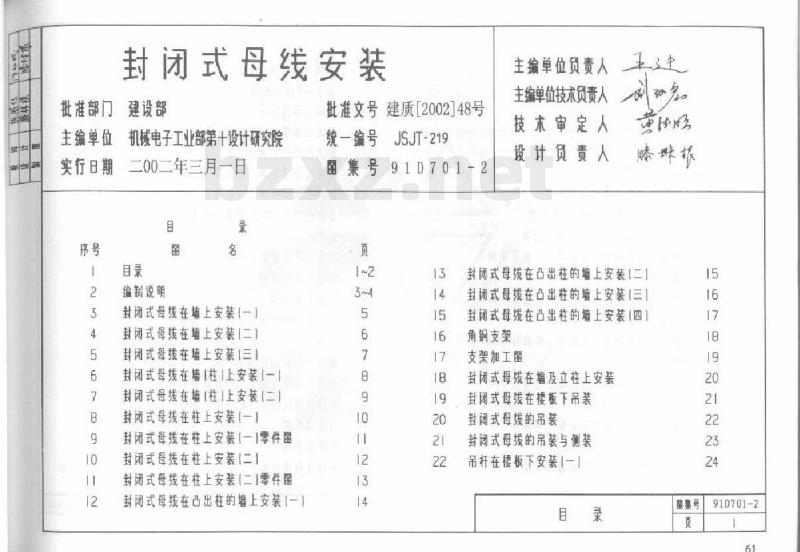 封闭式母线安装
批准部门 建设部 批准文号 建质[2002]48号
主编单位 机械电子工业部第十设计研究院 统一编号 JSJT-219
实行日期 二00二年三月一日 图集号 91D701-2
主编单位负责人
主编单位技术负责人
技术审定人
设计负责人
bzxz.net
目 录
序号 图 名 页
1 目录 1~2
2 编制说明 3~4
3 封闭式母线在墙上安装(一) 5
4 封闭式母线在墙上安装(二) 6
5 封闭式母线在墙上安装(三) 7
6 封闭式母线在墙(柱)上安装(一) 8
7 封闭式母线在墙(柱)上安装(二) 9
8 封闭式母线在柱上安装(一) 10
9 封闭式母线在柱上安装(一)零件图 11
10 封闭式母线在柱上安装(二) 12
11 封闭式母线在柱上安装(二)零件图 13
12 封闭式母线在凸出柱的墙上安装(一) 14
13 封闭式母线在凸出柱的墙上安装(二) 15
14 封闭式母线在凸出柱的墙上安装(三) 16
15 封闭式母线在凸出柱的墙上安装(四) 17
16 角钢支架 18
17 支架加工图 19
18 封闭式母线在墙及立柱上安装 20
19 封闭式母线在楼板下吊装 21
20 封闭式母线的吊装 22
21 封闭式母线的吊装与侧装 23
22 吊杆在楼板下安装(一) 24
目 录
图集号 91D701-2
页 1
61